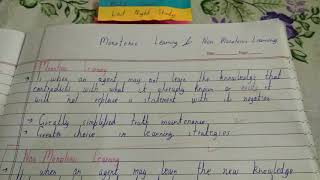 Last Night Study
Monotonic Learning & Non Monotonic Learning
Monotonic Learning
→ Is when an agent may not learn the knowledge that
contradicts with what it already known or exist it
will not replace a statement with its negation
→ Greatly simplified truth maintenance
→ Greater choice in learning strategies
Non Monotonic Learning
when an agent may learn the new knowledge